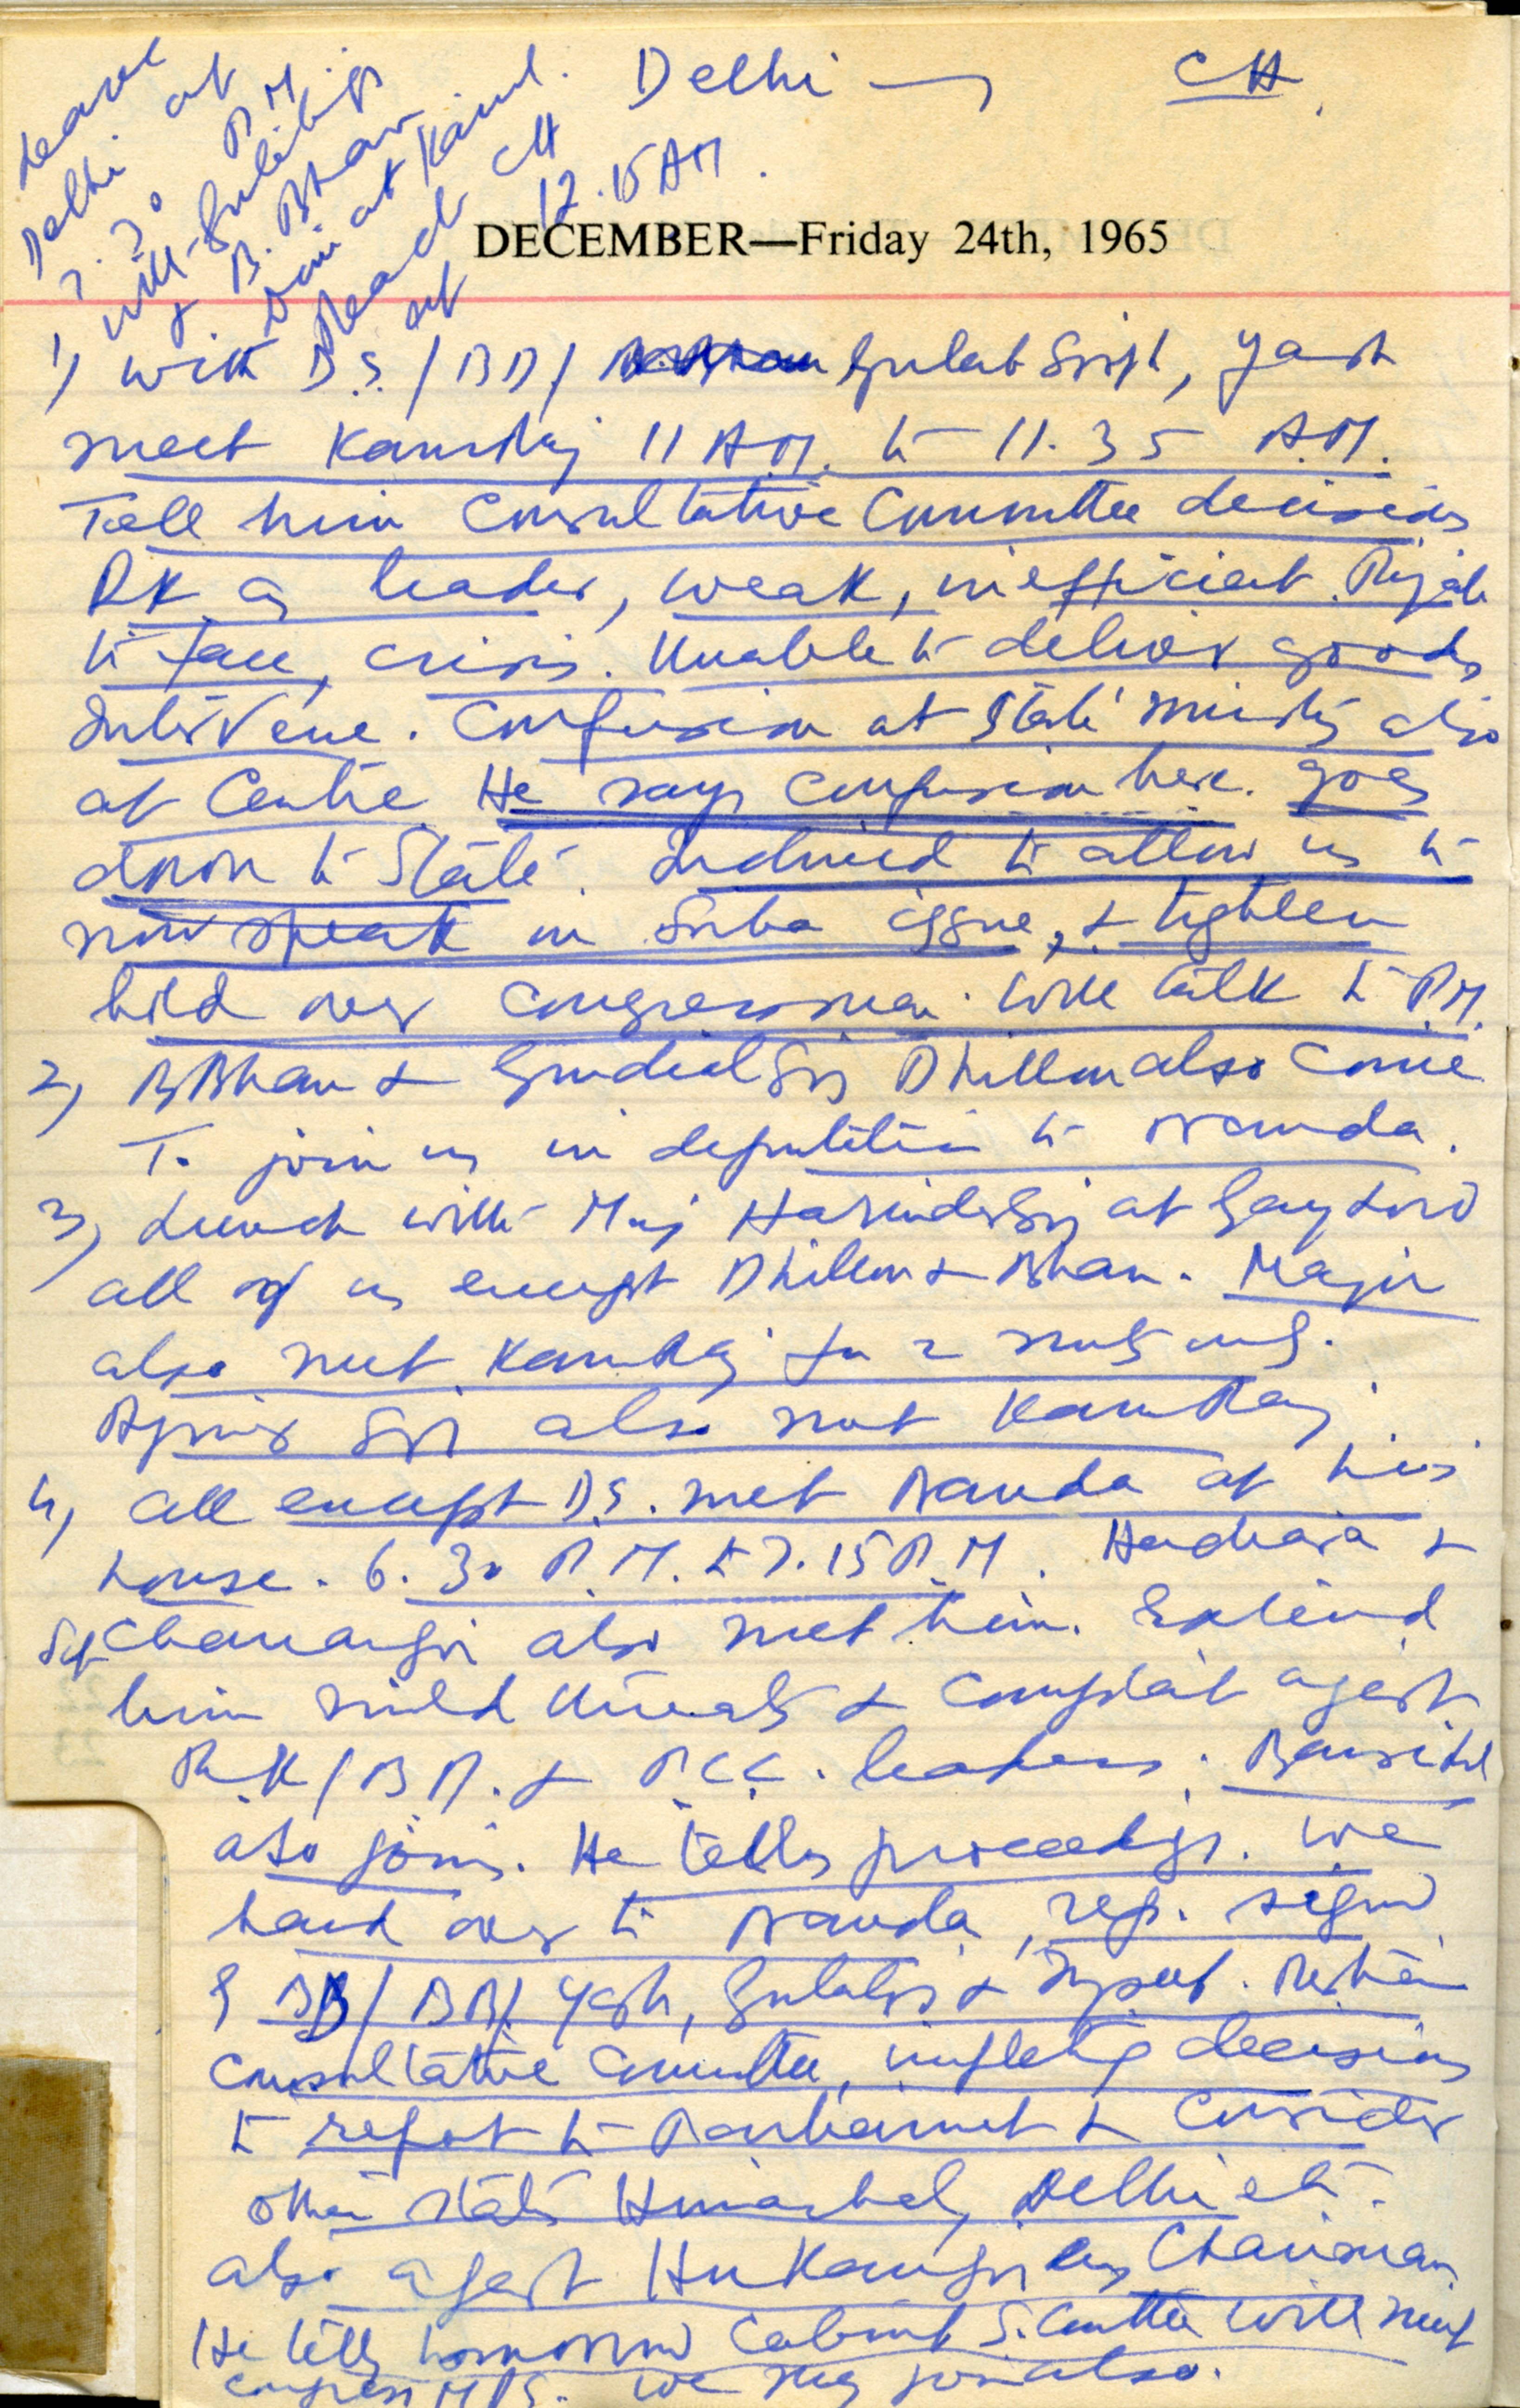 Leave
Delhi at
7.30 P.M
with Gulabsingh
& B. Bhan
at Karnal.
Reach CH
at 12.15 AM.
Delhi — CH
DECEMBER—Friday 24th, 1965
1) with D.S./BD/ Gulab Singh, Yash
meet Kamraj 11 A.M. to 11.35 A.M.
Tell him Consultative Committee decisions
RK as leader, weak, inefficient.
to face, crisis. Unable to deliver goods
Intervene. Confusion at State Ministry also
at Centre. He says confusion here goes
down to State. Inclined to allow us to
now speak on Suba issue, & tighten
hold over congressmen. Will talk to P.M.
2) B Bhan & Gurdial Sing Dhillon also come
To join us in deputation to Nanda.
3) Lunch with Maj Harinder Sing at Gaylord
all of us except Dhillon & Bhan. Major
also met Kamraj for 2 mnts only.
Ajmer Sing also met Kamraj.
4) all except D.S. met Nanda at his
house. 6.30 P.M. to 7.15 P.M. &
also met him.
him mild threats & complaint agest
R.K/BD. & P.C.C. leaders. Bansilal
also joins. He tells proceedings. We
hand over to Nanda, rep. signed
BD/ Yash, Gulabsing &
Consultative Committee, decisions
to report to Parliament & consider
other states Himachal, Delhi etc.
also agest Hukamsing as Chairman.
He tells tomorrow Cabinet S. Comttee will meet
Congress M.Ps. We may join also.